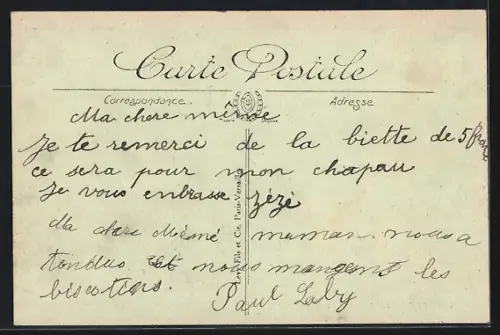 Carte Postale
Correspondance.
Adresse
Ma chere mémé
Je te remerci de la biette de 5 franc
ce sera pour mon chapau
Je vous enbrasse Zézé
Ma chere Mémé maman nous a
tendus et nous mangens les
biscotins.
Paul
Levy Fils et Cie, Paris-Versailles